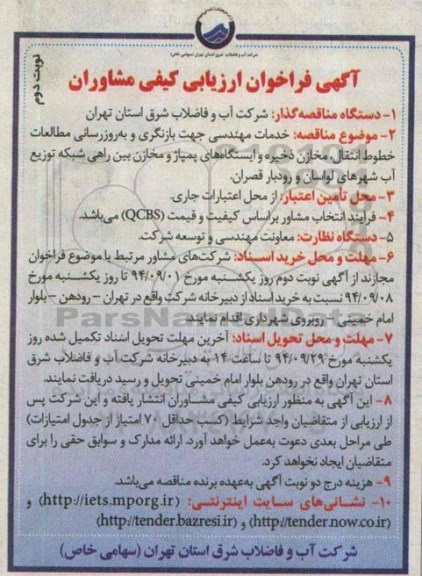 شرکت آب و فاضلاب شرق استان تهران (سهامی خاص)
نوبت دوم
آگهی فراخوان ارزیابی کیفی مشاوران
۱- دستگاه مناقصه‌گذار: شرکت آب و فاضلاب شرق استان تهران
۲- موضوع مناقصه: خدمات مهندسی جهت بازنگری و به‌روزرسانی مطالعات
خطوط انتقال، مخازن ذخیره و ایستگاه‌های پمپاژ و مخازن بین راهی شبکه توزیع
آب شهرهای لواسان و رودبار قصران.
۳- محل تأمین اعتبار: از محل اعتبارات جاری.
۴- فرآیند انتخاب مشاور براساس کیفیت و قیمت (QCBS) می‌باشد.
۵- دستگاه نظارت: معاونت مهندسی و توسعه شرکت.
۶- مهلت و محل خرید اسناد: شرکت‌های مشاور مرتبط با موضوع فراخوان
مجازند از آگهی نوبت دوم روز یکشنبه مورخ ۹۴/۰۹/۰۱ تا روز یکشنبه مورخ
۹۴/۰۹/۰۸ نسبت به خرید اسناد از دبیرخانه شرکت واقع در تهران – رودهن – بلوار
امام خمینی – روبروی شهرداری اقدام نمایند.
ParsNamadData
۷- مهلت و محل تحویل اسناد: آخرین مهلت تحویل اسناد تکمیل شده روز
یکشنبه مورخ ۹۴/۰۹/۲۹ تا ساعت ۱۴ به دبیرخانه شرکت آب و فاضلاب شرق
استان تهران واقع در رودهن بلوار امام خمینی تحویل و رسید دریافت نمایند.
۸- این آگهی به منظور ارزیابی کیفی مشاوران انتشار یافته و این شرکت پس
از ارزیابی از متقاضیان واجد شرایط (کسب حداقل ۷۰ امتیاز از جدول امتیازات)
طی مراحل بعدی دعوت به‌عمل خواهد آورد. ارائه مدارک و سوابق حقی را برای
متقاضیان ایجاد نخواهد کرد.
۹- هزینه درج دو نوبت آگهی به‌عهده برنده مناقصه می‌باشد.
۱۰- نشانی‌های سایت اینترنتی: (http://iets.mporg.ir) و
(http://tender.now.co.ir) و (http://tender.bazresi.ir)
شرکت آب و فاضلاب شرق استان تهران (سهامی خاص)